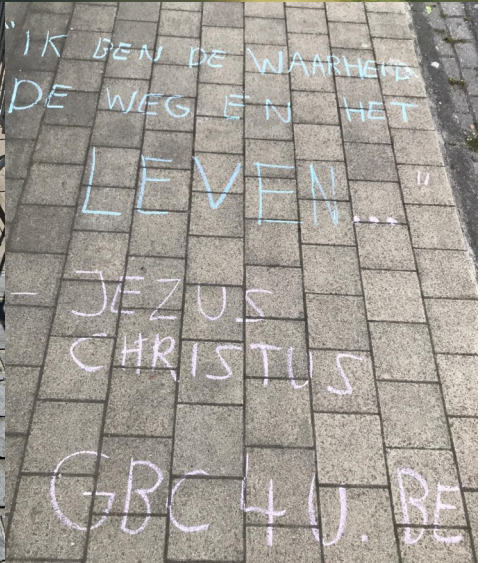 "IK BEN DE WAARHEID
DE WEG EN HET
LEVEN..."
- JEZUS
CHRISTUS
GBC4U.BE